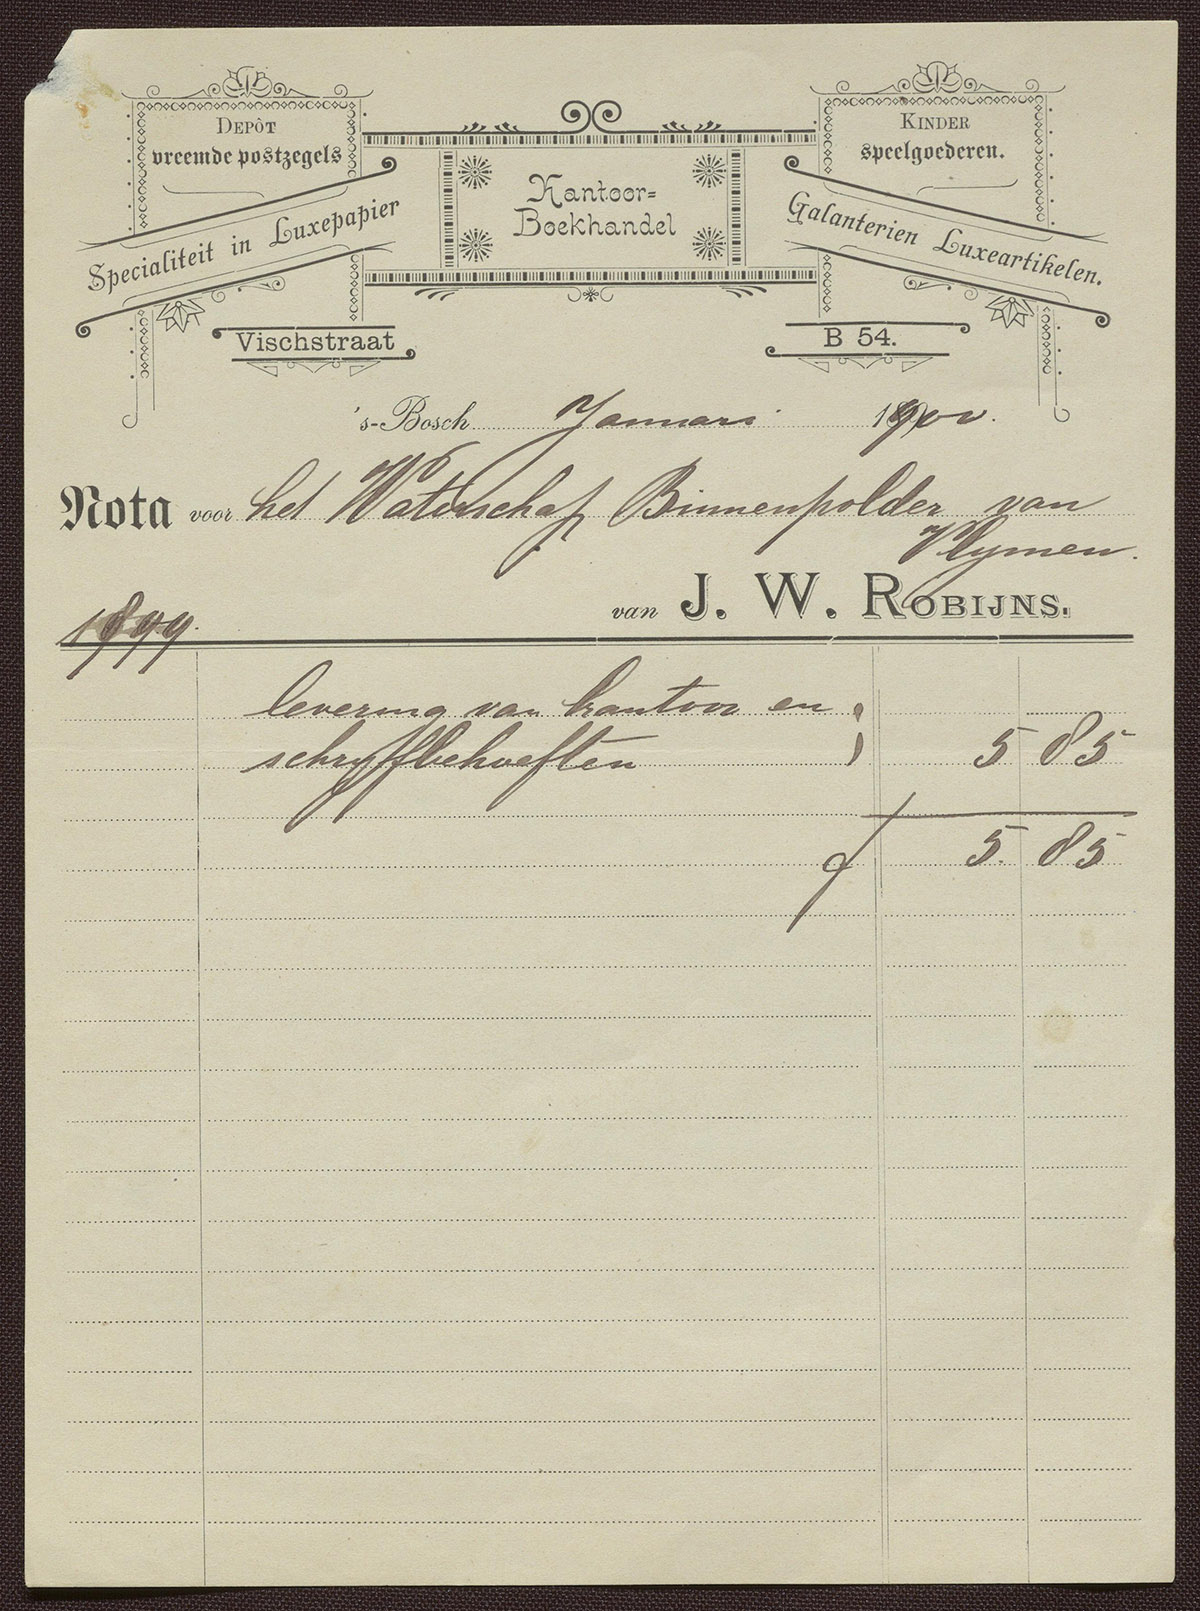 DEPÔT
vreemde postzegels
Specialiteit in Luxepapier
Vischstraat
Kantoor-
Boekhandel
KINDER
speelgoederen.
Galanterien Luxeartikelen.
B 54.
's-Bosch Januari 1900.
Nota voor het Waterschap Binnenpolder van
Vlymen.
van J. W. ROBIJNS.
1899.
levering van kantoor en
schryfbehoeften 5 85
f 5. 85